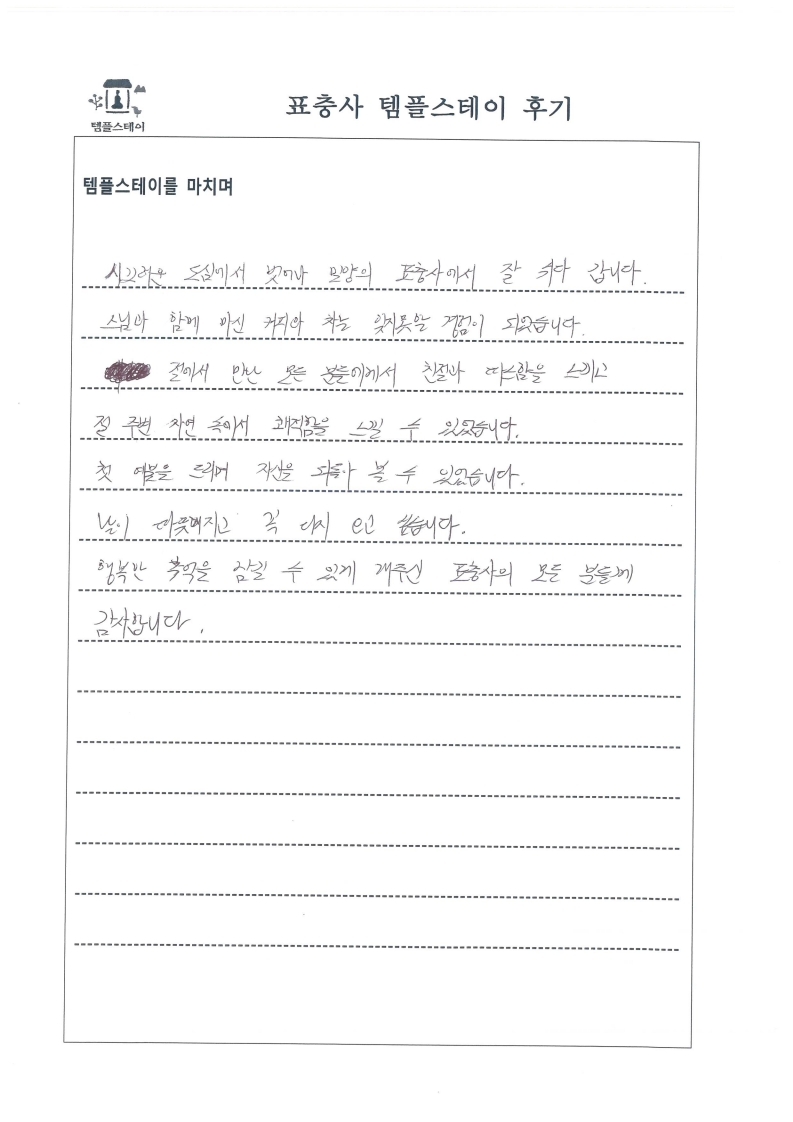 템플스테이
표충사 템플스테이 후기
템플스테이를 마치며
시끄러운 도심에서 벗어나 밀양의 표충사에서 잘 쉬다 갑니다.
스님과 함께 마신 커피와 차는 잊지못할 경험이 되었습니다.
절에서 만난 모든 분들에게서 친절과 따스함을 느끼고
절 주변 자연 속에서 쾌적함을 느낄 수 있었습니다.
첫 예불을 드리며 자신을 되돌아 볼 수 있었습니다.
날이 따뜻해지고 꼭 다시 오고 싶습니다.
행복한 추억을 남길 수 있게 해주신 표충사의 모든 분들께
감사합니다.